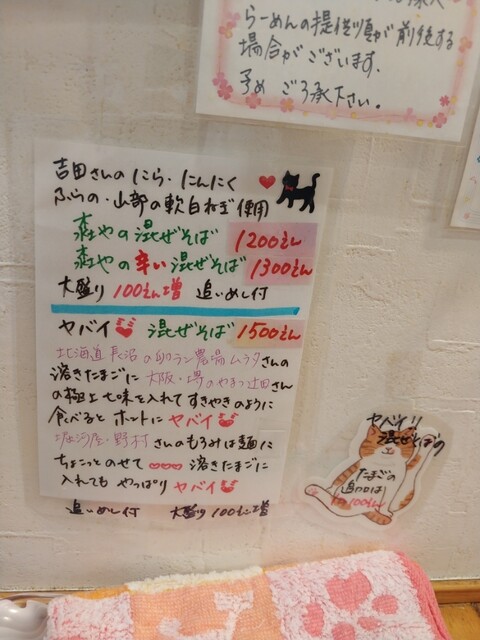 らーめんの提供順が前後する
場合がございます。
予め ご了承下さい。
吉田さんの にら・にんにく
ふらの・山部の軟白ねぎ使用
森やの混ぜそば 1200えん
森やの辛い混ぜそば 1300えん
大盛り 100えん増 追いめし付
ヤバイ 混ぜそば 1500えん
北海道長沼の卵ラン農場ムラタさんの
溶きたまごに 大阪・堺のやまつ辻田さん
の極上七味を入れてすきやきのように
食べると ホントに ヤバイ
堀河屋・野村さんのもろみは麺に
ちょこっとのせて 溶きたまごに
入れても やっぱり ヤバイ
追いめし付 大盛り100えん増
ヤバイ!!
混ぜそばの
たまごの
追加は
100えん